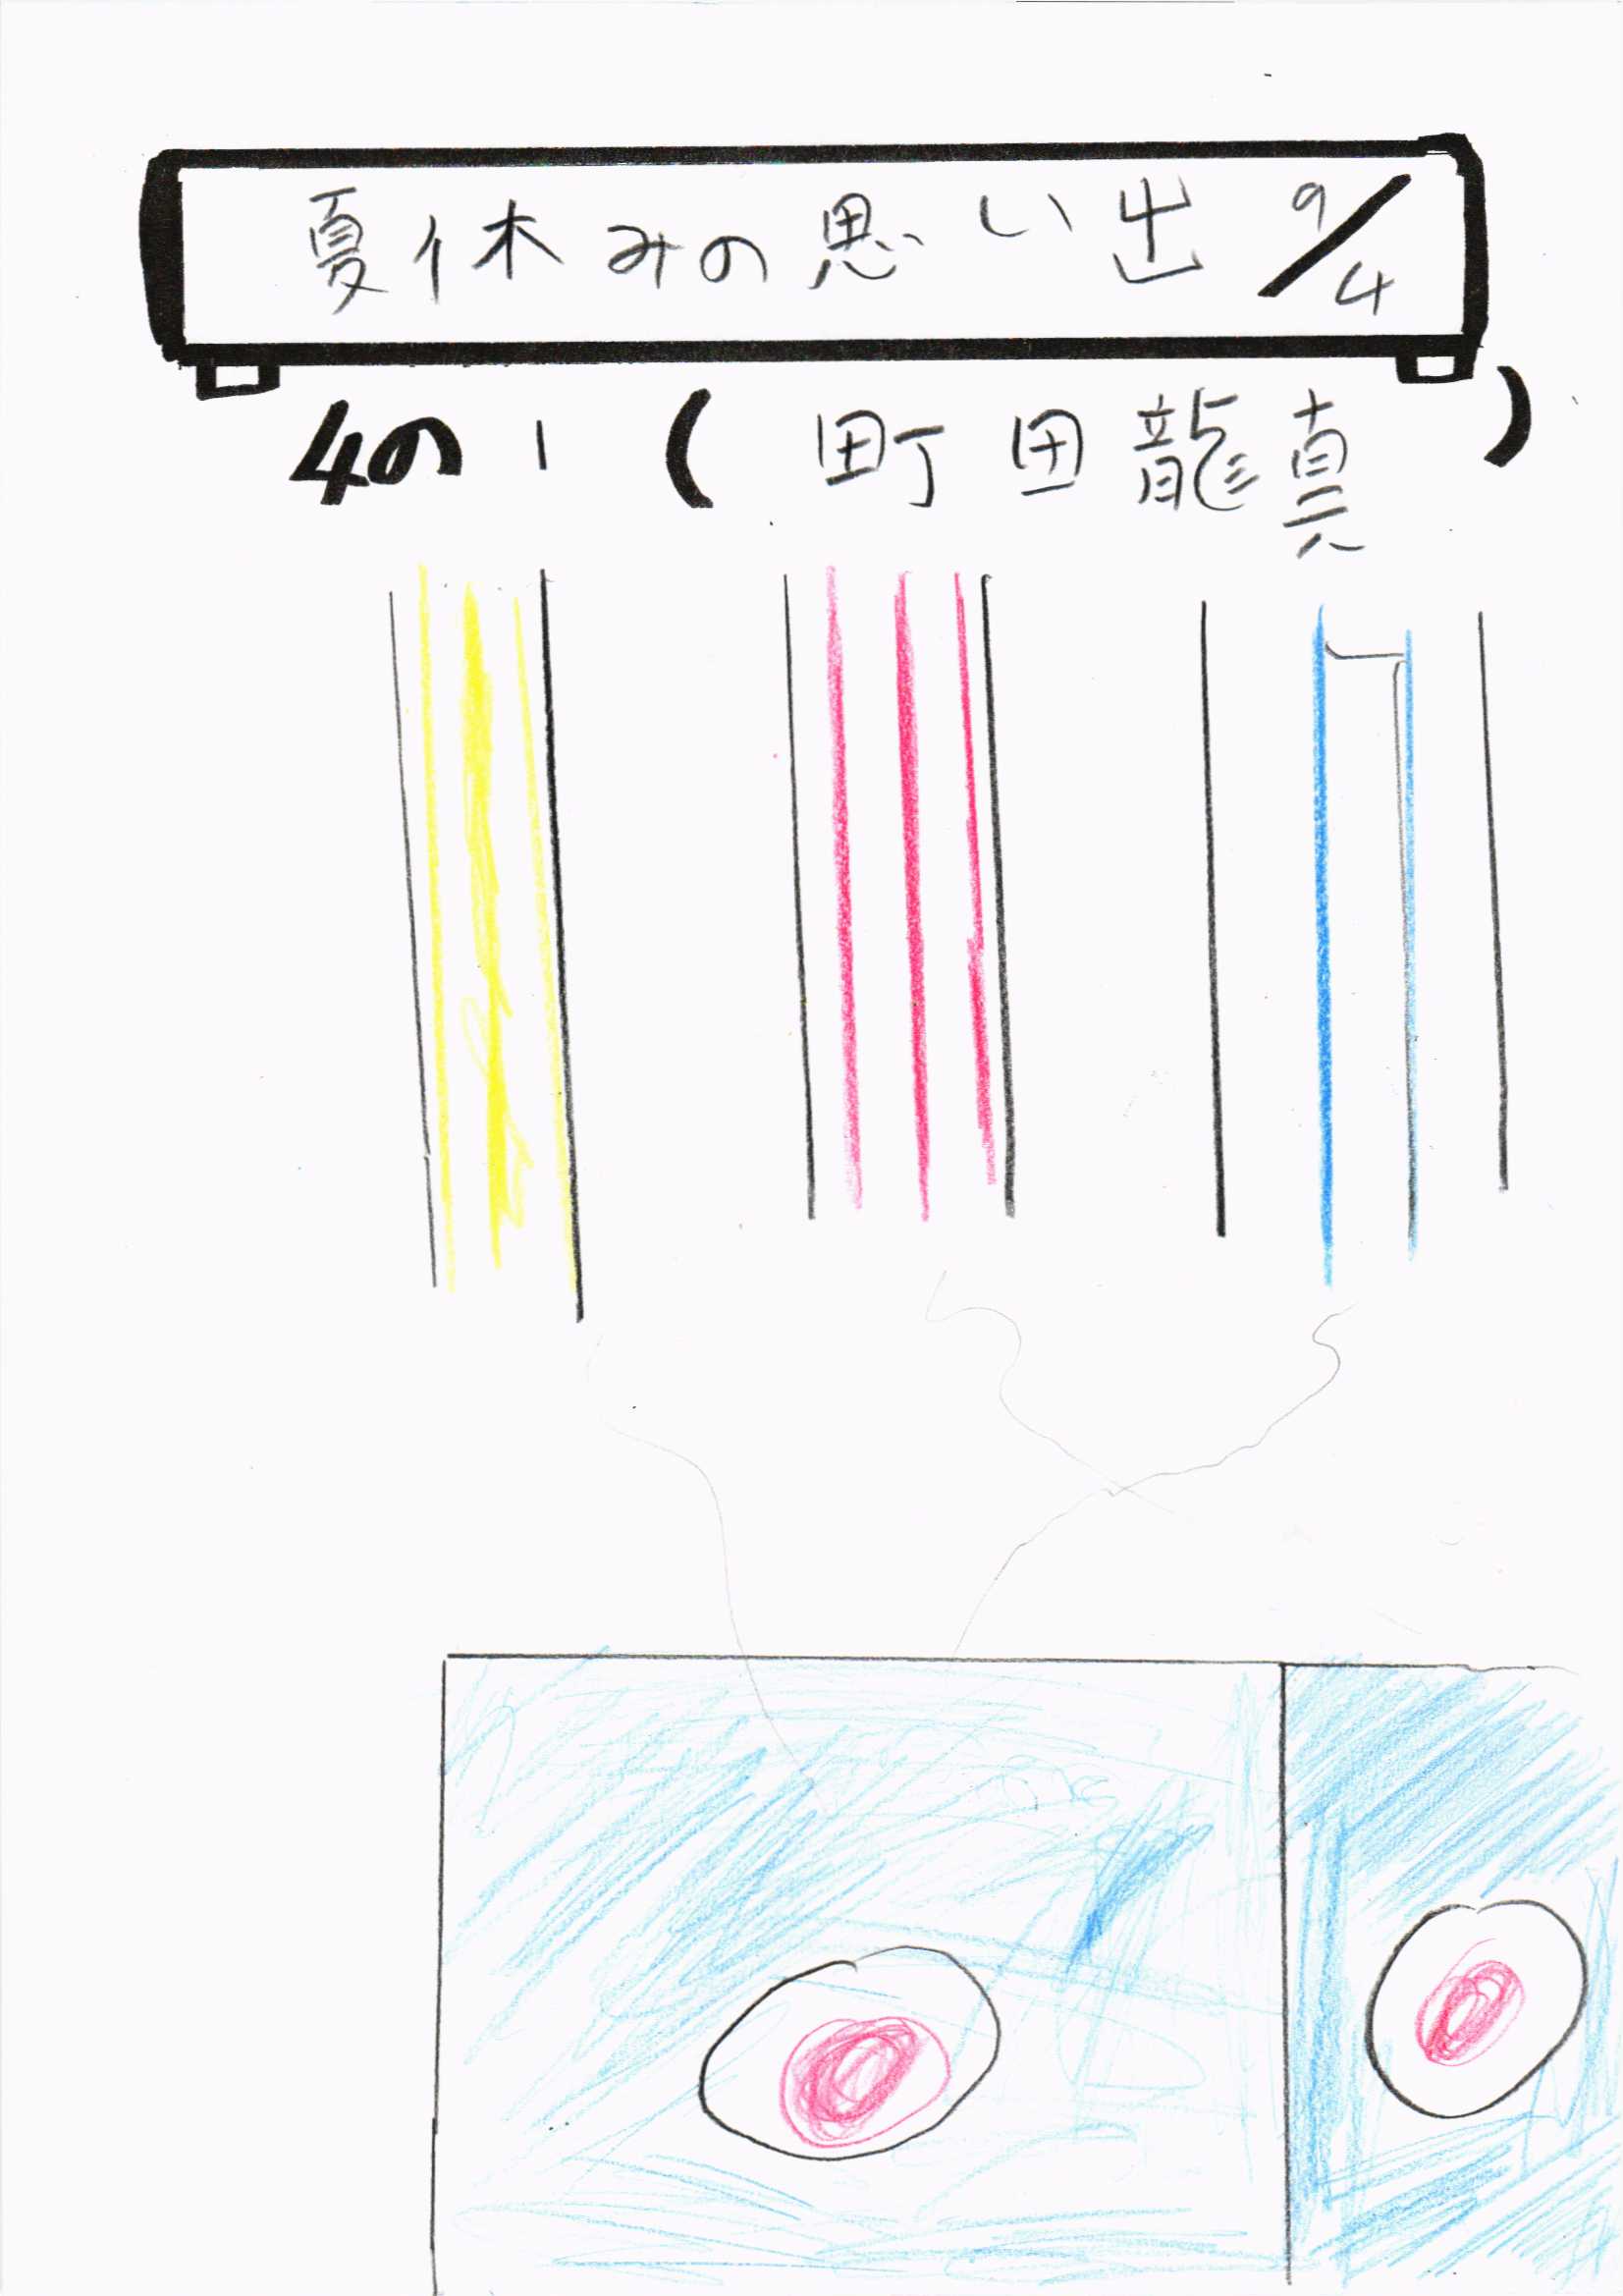 夏休みの思い出 9/4
4の1(町田龍真)